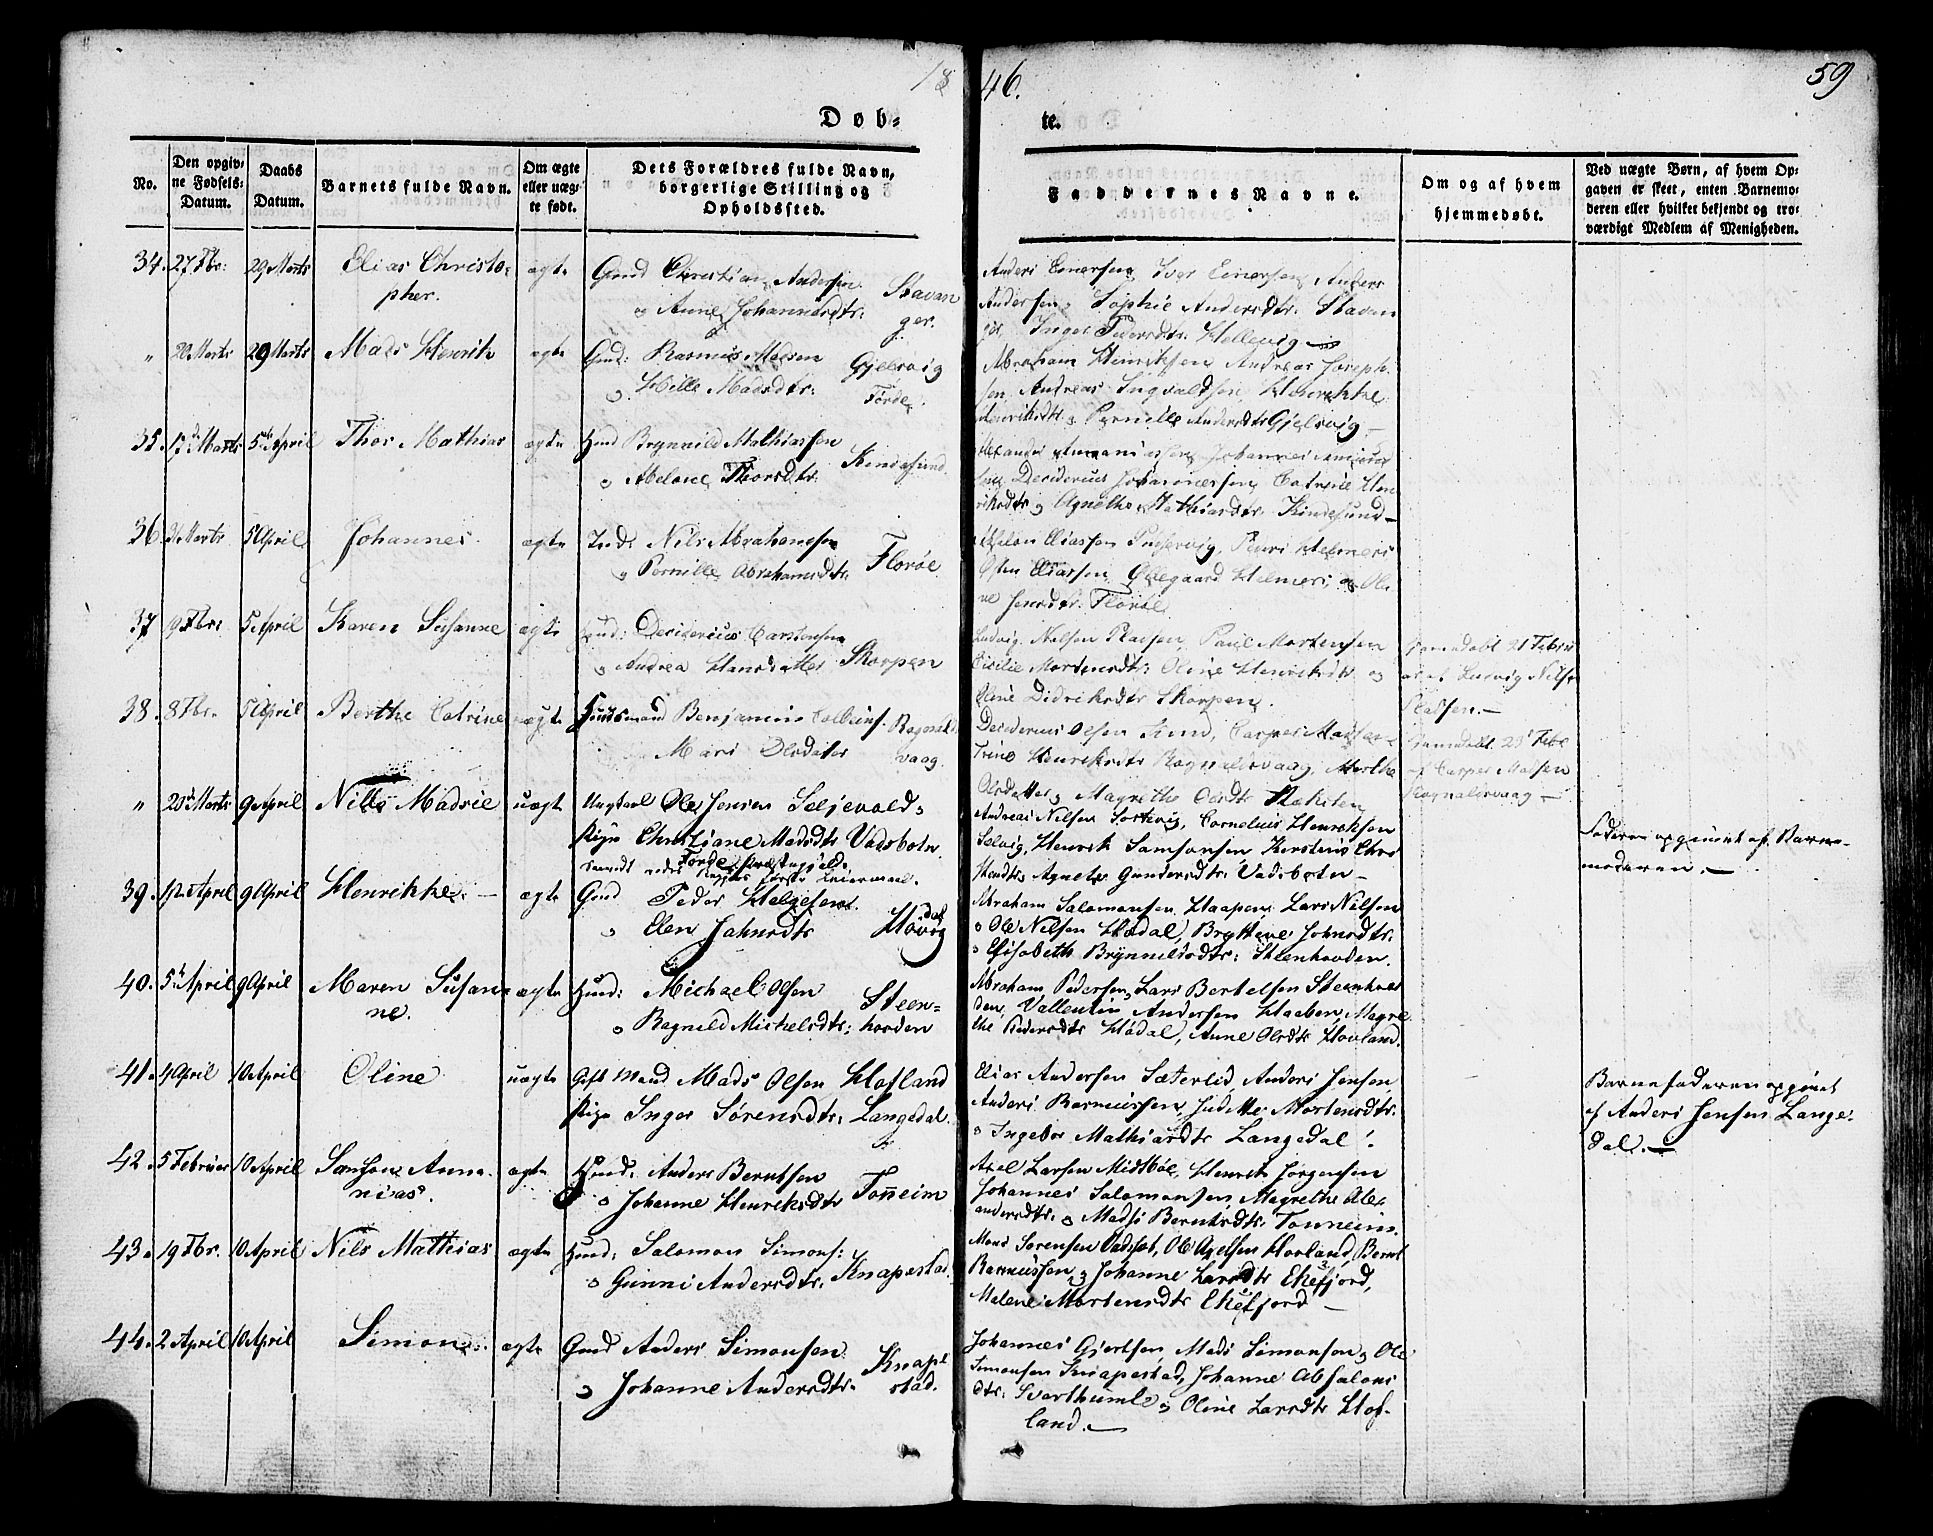 18 46. 59
Døb- te.
No.
Den opgiv-
ne Fødsels-
Datum.
Daabs
Datum.
Barnets fulde Navn.
Om ægte
eller uæg-
te født.
Dets Forældres fulde Navn,
borgerlige Stilling og
Opholdssted.
Faddernes Navne.
Om og af hvem
hjemmedøbt.
Ved uægte Børn, af hvem Op-
gaven er skeet, enten Barnemo-
deren eller hvilket bekjendt og tro-
værdigt Medlem af Menigheden.
34. 27 Fbr. 29 Marts Elias Christo-
pher.
ægte
Gmd Christian Andersen
og Anne Johannesdtr: Stavan
ger.
Anders Einersen, Iver Einersen, Anders
Andersen, Sophie Andersdtr. Stavan
ger, Inger Pedersdtr. Hellevig
" 20 Marts 29 Marts Mads Henrik
ægte
Gmd: Rasmus Madsen
Hille Madsdtr:
Gjelsvig
Førde.
Abraham Henriksen Andreas Joseph-
sen, Andreas Ingvaldsen, Henrikke
Henriksdtr. og Pernille Andersdtr Gjelsvig
35. 17 Marts 5 April Thor Mathias
ægte
Hmd Brynnild Mathiassen
og Abelone Thorsdtr. Kindesund.
Desiderius Johannessen, Catrine Hen
riksdtr. og Agnethe Mathiasdtr. Kindesund
36. 3 Marts 5 April Johannes.
ægte
Inds Nils Abrahamsen
og Pernille Abrahamsdtr. Florøe.
Absalon Eliassen
Østen Eliassen, Helmers og Oli
ne Jensdtr. Florøe
37 9 Fbr: 5 April Karen Susanne
ægte
Hmd: Desiderius Carstensen
og Andrea Hansdatter Skorpen
Ludvig Nilsen Klassen, Paul Mortensen
Cicilie Mortensdtr: Oline Henriksdtr. og
Oline Didriksdtr Skorpen.
hjemdøbt 21 Febru
ar af Ludvig Nilse
Klassen.—
38. 8 Fbr. 5 April Berthe Catrine
uægte
Huusmand Benjamin Colbeins. Ragnalds
Mari Olsdatter vaag.
Desiderius Olsen Casper Madsen
Trine Henriksdtr Ragnaldsvaag, Marthe
Olsdatter og Magrethe Olsdtr
hjemdøbt 23 Febr
af Casper Madsen
Ragnaldsvaag —
" 20 Marts 9 April Nille Madsie
uægte
Ungkarl Ole Jensen Seljevold,
Pige Christiane Madsdtr Vadsbotn
Førde Præstegjeld.
Leiermaal.
Andreas Nilsen Sortevig, Cornelius Henriksen
Selvig, Henrik Samsonsen
Agnethe Gundersdtr: Vadsbotn —
Faderen opgivet af Barne-
moderen.—
39. 12 April 9 April Henrikke.
ægte
Gmd Peder Helgesen
" Elen Johnsdtr
Abraham Salomonsen Haapen Lars Nilsen
Ole Nilsen Hødal, Bryttene Johnsdtr:
Elisabeth Brynnelsdtr: Steenhovden.
40. 5 April 9 April Maren Susan-
ne.
ægte
Hmd: Michael Olsen
" Ragnild Michelsdtr:
Steen-
hovden
Abraham Pedersen, Lars Bertelsen Steenhov
den, Vallentin Andersen Haaben, Magre
the Pedersdtr Hødal, Anne Olsdtr Hovland.
41. 4 April 10 April Oline
uægte
Gift Mand Mads Olsen Hofland
Pige Inger Sørensdtr: Langedal.
Elias Andersen Sæterlid Anders Jensen
Anders Rasmussen, Juditte Mortensdtr:
Ingebor Mathiasdtr Langedal.
Barnefaderen opgivet
af Anders Jensen Lange-
dal.—
42. 5 Februar 10 April Samson Anna-
nias.
ægte
Hmd: Anders Berntsen
" Johanne Henriksdtr
Tonneim
Axel Larsen Midtbøe, Henrik Jørgensen
Johannes Salomonsen Magrethe Alex-
andersdtr. og Madsi Berntsdtr. Tonneim.
43. 19 Fbr. 10 April Nils Mathias
ægte
Hmd: Salomon Simons:
" Gunni Andersdtr. Knapestad.
Mons Sørensen Vadset, Ole Axelsen Hovland, Bernt
Rasmussen og Johanne Larsdtr Ekefjord,
Malene Mortensdtr Ekefjord —
44. 2 April 10 April Simon.
ægte
Gmd Anders Simonsen
" Johanne Andersdtr.
Knape
stad.
Johannes Gjertsen Mads Simonsen, Ole
Simonsen Knapestad, Johanne Absalons
dtr. Svarthumle og Oline Larsdtr Hof-
land.—